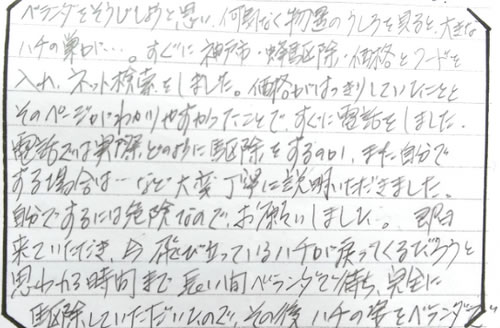 ベランダをそうじしようと思い、何気なく物置のうしろを見ると、大きな
ハチの巣が…。すぐに神戸市・蜂駆除・価格とワードを
入れ、ネット検索をしました。価格がはっきりしていたことと
そのページがわかりやすかったことで、すぐに電話をしました。
電話では実際どのように駆除をするのか、また自分で
する場合は…など大変丁寧に説明いただきました。
自分でするには危険なので、お願いしました。即日
来ていただき、今飛び立っているハチが戻ってくるだろうと
思われる時間まで長い間ベランダで待ち、完全に
駆除していただいたので、その後ハチの姿をベランダで